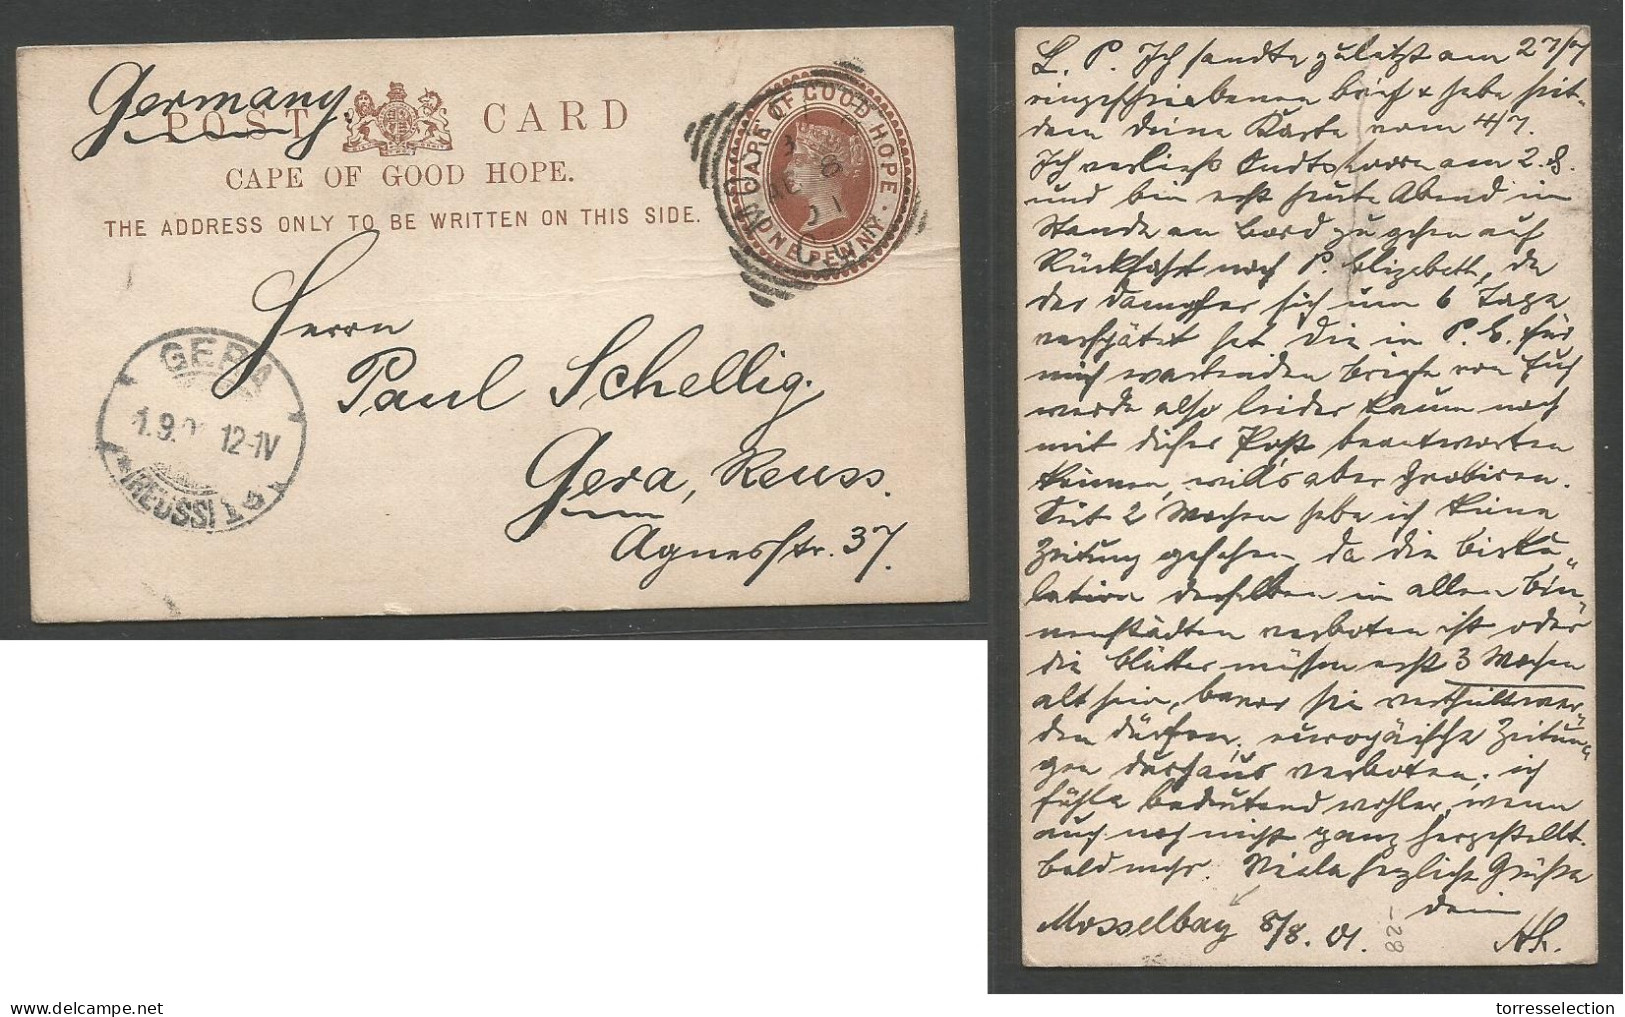 Germany.
POST CARD
CAPE OF GOOD HOPE.
THE ADDRESS ONLY TO BE WRITTEN ON THIS SIDE.
CAPE OF GOOD HOPE
ONE PENNY.
Herrn
Paul Schellig.
Gera, Reuss.
Agnesstr. 37.
GERA
1.9. 12-1V
(REUSS)
L. P. Ich sandte zuletzt am 27/7
eingeschriebenen Brief & habe seit-
dem Deine Karte vom 4/7.
Ich verließ Oudtshoorn am 2.8.
und bin erst heute Abend im
Stande an Bord zu gehen auf
Rückfahrt nach P. Elizabeth, da
der Dampfer sich um 6 Tage
verspätet hat die in P. E. für
mich wartenden Briefe von Euch
werde also leider kaum noch
mit dieser Post beantworten
können, will's aber probiren.
Seit 2 Wochen habe ich keine
Zeitung gesehen, da die Cirku-
lation derselben in allen Bin-
nenstädten verboten ist oder
die Blätter müssen erst 3 Wochen
alt sein, bevor sie vertheilt wer-
den dürfen, europäische Zeitun-
gen durchaus verboten, ich
fühle bedeutend wohler, wenn
auch noch nicht ganz hergestellt.
Bald mehr. Viele herzliche Grüße
Dein
Mosselbay 8/8. 01.
-28
torresselection